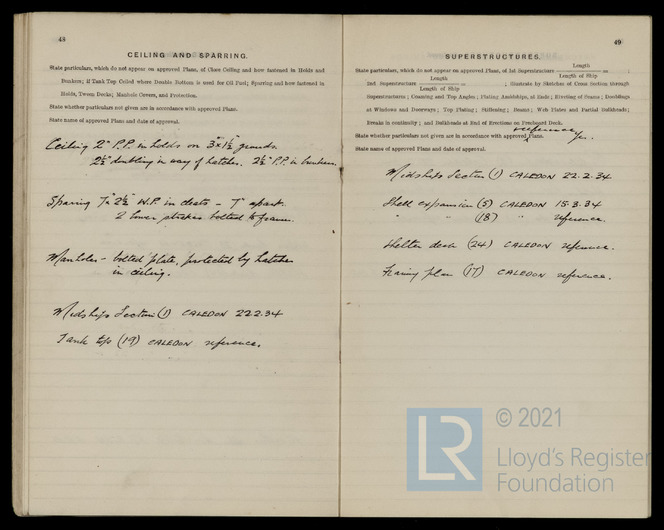 48
CEILING AND SPARRING.
State particulars, which do not appear on approved Plans, of Close Ceiling and how fastened in Holds and
Bunkers; if Tank Top Ceiled where Double Bottom is used for Oil Fuel; Sparring and how fastened in
Holds, Tween Decks; Manhole Covers, and Protection.
State whether particulars not given are in accordance with approved Plans.
State name of approved Plans and date of approval.
Ceiling 2" P.P. in holds on 3"x1½" grounds.
2½" doubling in way of hatches. 2½" P.P. in bunkers.
Sparring 7"x 2½" W.P. in cleats - 7" apart.
2 lower strakes bolted to frames.
Manholes - bolted plate, protected by hatches
in ceiling.
Midships Section (1) CALEDON 22.2.34
Tank top (19) CALEDON reference.
49
SUPERSTRUCTURES.
State particulars, which do not appear on approved Plans, of 1st Superstructure Length / Length of Ship = ;
2nd Superstructure Length / Length of Ship = ; illustrate by Sketches of Cross Section through
Superstructures; Coaming and Top Angles; Plating Amidships, at Ends; Riveting of Seams; Doublings
at Windows and Doorways; Top Plating; Stiffening; Beams; Web Plates and Partial Bulkheads;
Breaks in continuity; and Bulkheads at End of Erections on Freeboard Deck.
reference
State whether particulars not given are in accordance with approved Plans. Yes.
State name of approved Plans and date of approval.
Midships Section (1) CALEDON 22.2.34
Shell expansion (5) CALEDON 15.3.34
" " (18) " reference.
Shelter deck (24) CALEDON reference.
Framing plan (17) CALEDON reference.
LR
© 2021
Lloyd's Register
Foundation